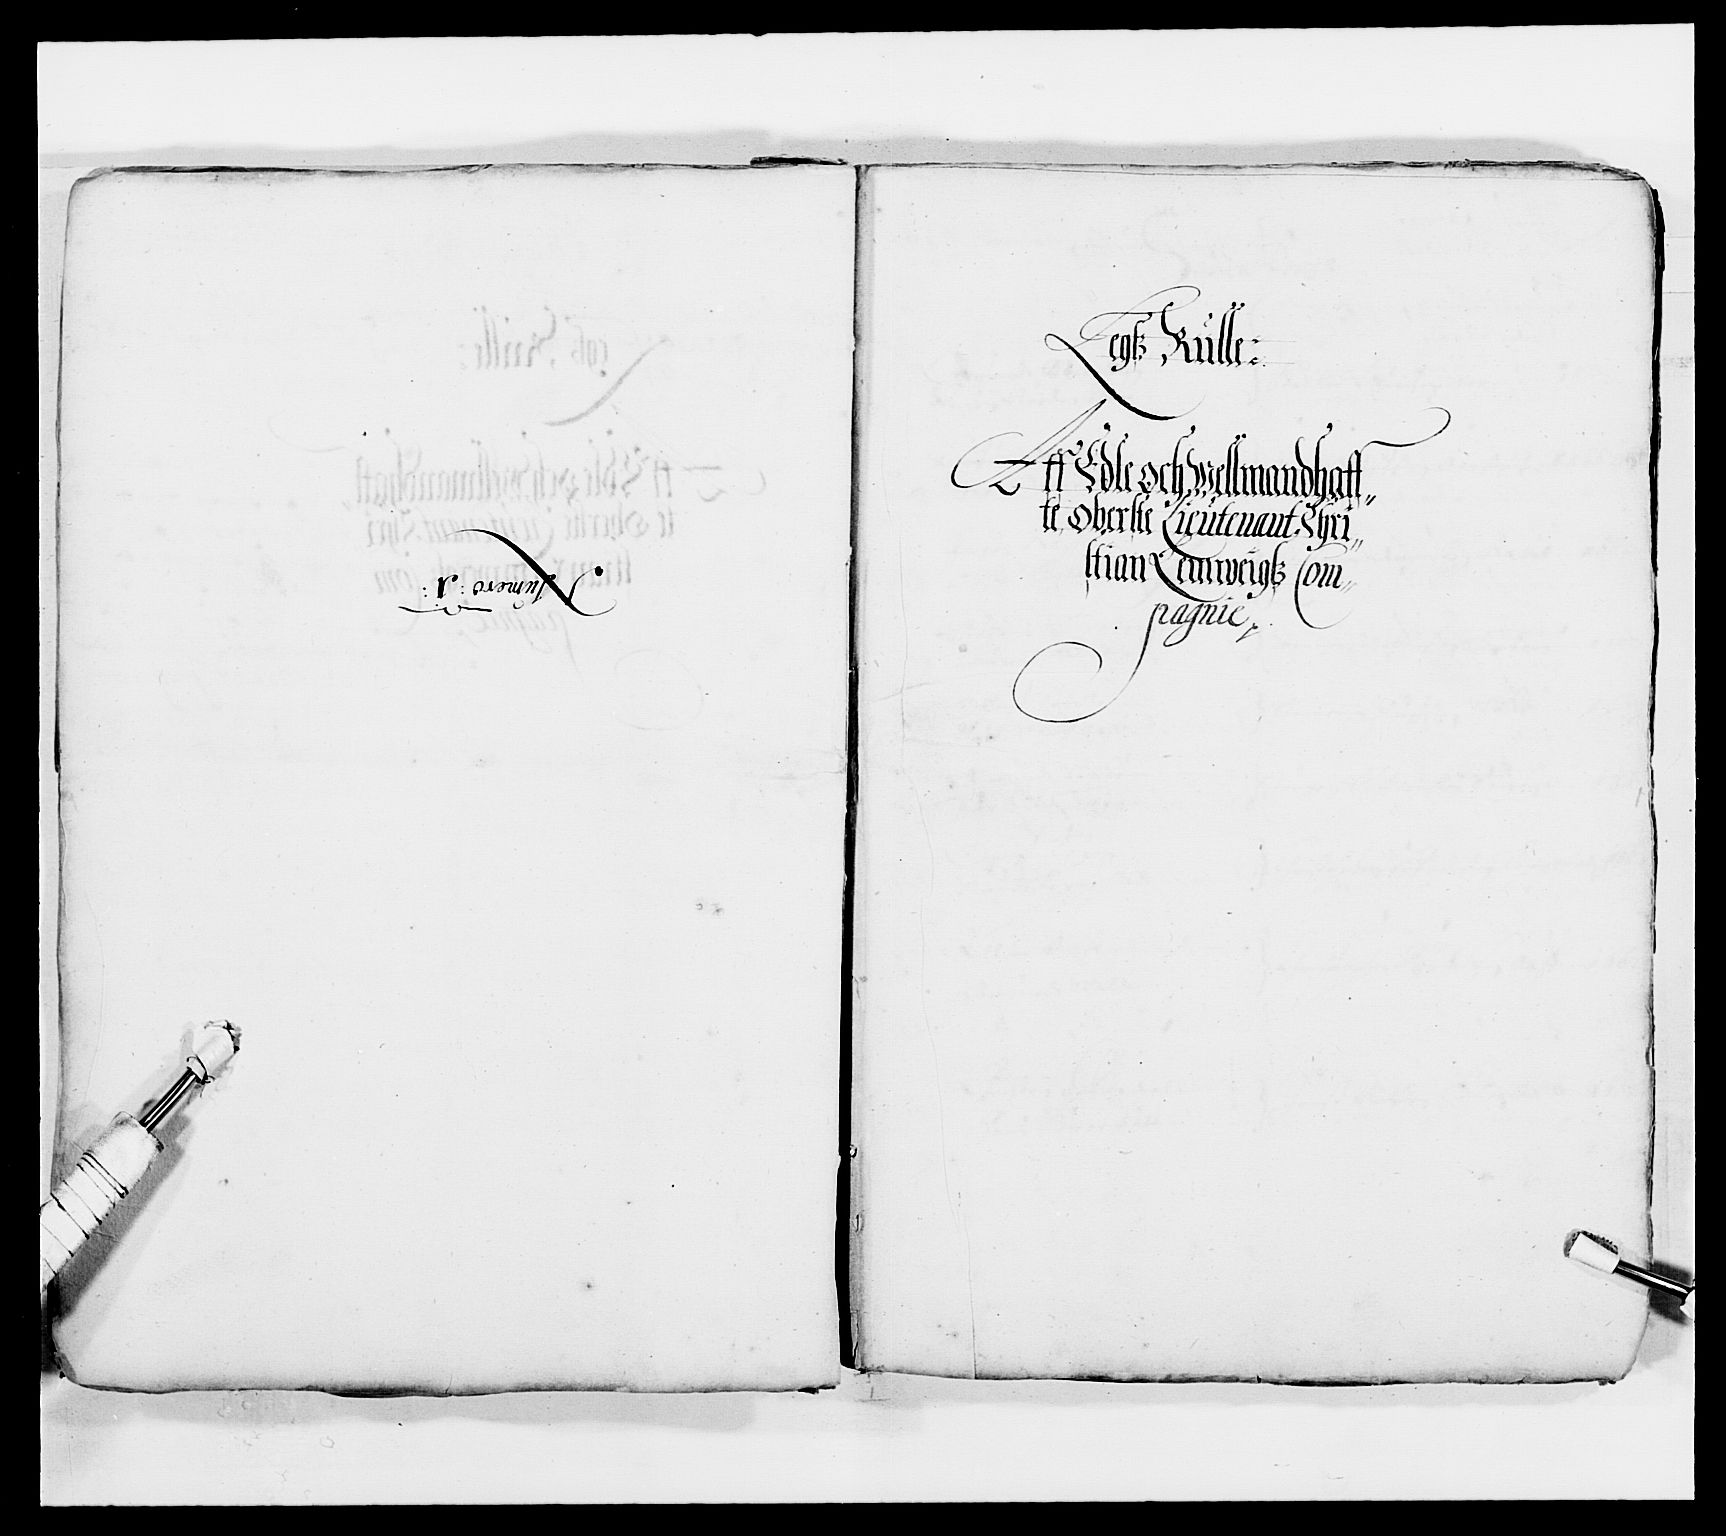 Numero: 1:
Legtz Rulle:
Aff Edle och wellmandhaff„
te Oberste Lieutenant Chri„
stian Lemweigtz Com„
pagnie,